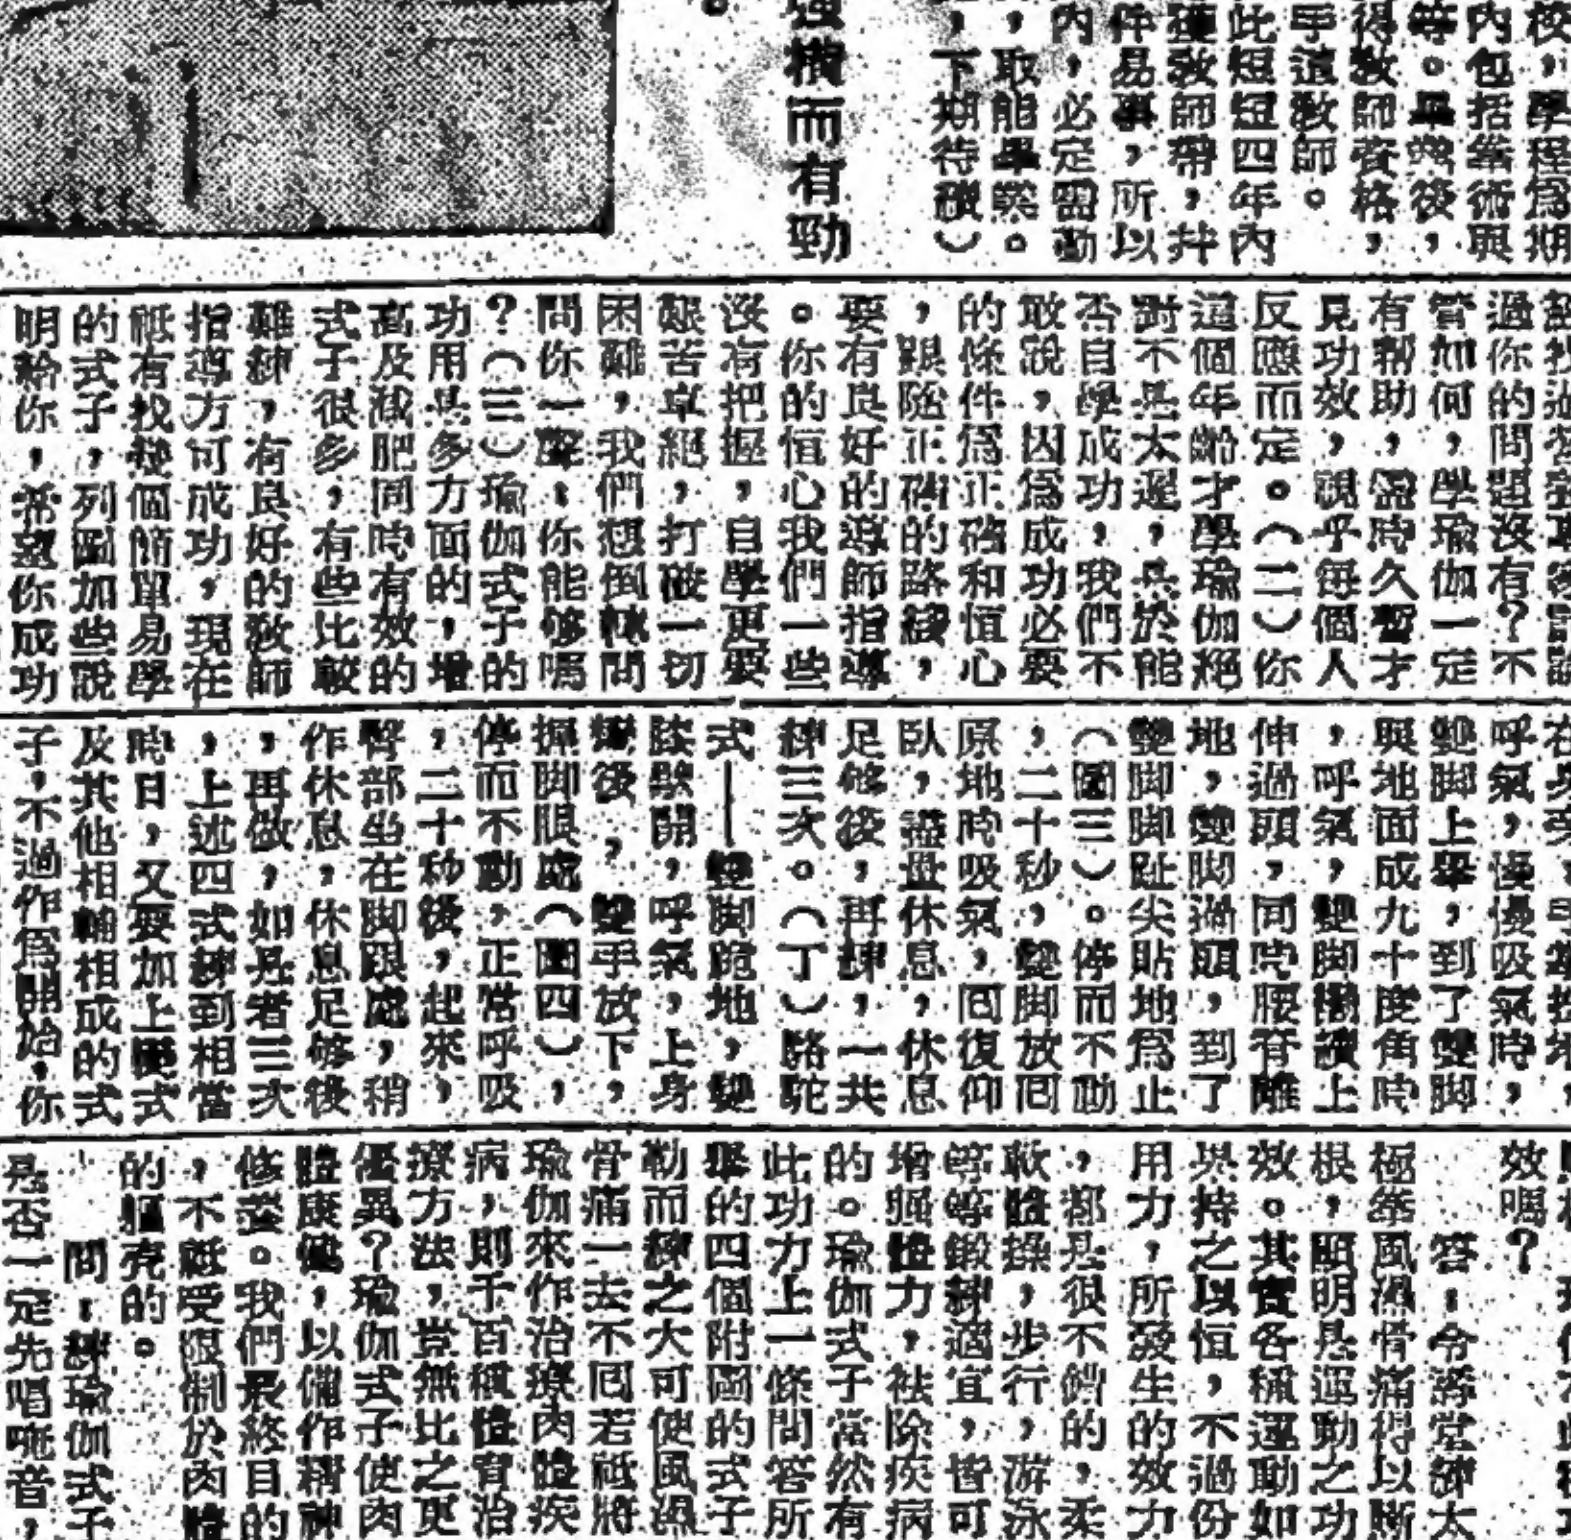 校，學程爲期
內包括藝術與
等。畢業後，
得教師資格，
手這教師。
此短短四年內
種教師帶，幷
件易事，所以
內，必定需勤
，取能畢業。
，下期待續）
強橫而有勁
。
過你的問題沒有？不
管如何，學瑜伽一定
有帮助，需時久暫才
見功效，視乎每個人
反應而定。（二）你
這個年齡才學瑜伽絕
對不是太遲，至於能
否自學成功，我們不
敢說，因爲成功必要
的條件爲正確和恒心
，跟隨正確的路綫，
要有良好的導師指導
。你的恒心我們一些
沒有把握，自學更要
艱苦卓絕，打破一切
困難，我們想倒轉問
問你一聲，你能够嗎
？（三）瑜伽式子的
功用是多方面的，增
高及減肥同時有效的
式子很多，有些比較
難練，有良好的教師
指導方可成功，現在
祗有找幾個簡單易學
的式子，列圖加些說
明給你，希望你成功
呼氣，慢慢吸氣時，
雙脚上舉，到了雙脚
與地面成九十度角時
，呼氣，雙脚繼續上
伸過頭，同時腰脊離
地，雙脚過頭，到了
雙脚脚趾尖貼地爲止
（圖三）。停而不動
，二十秒，雙脚放囘
原地時吸氣，囘復仰
臥，盡量休息，休息
足够後，再練，一共
練三次。（丁）駱駝
式——雙脚跪地，雙
膝默開，呼氣，上身
變後，雙手放下，
握脚眼處（圖四），
停而不動，正常呼吸
，二十秒後，起來，
臀部坐在脚跟處，稍
作休息，休息足够後
，再做，如是者三次
，上述四式練到相當
時日，又要加上變式
及其他相輔相成的式
子，不過作爲開始，你
效嗎？
答：令壽堂練太
極拳風濕骨痛得以斷
根，顯明是運動之功
效。其實各種運動如
坚持之以恒，不過份
用力，所發生的效力
，都是很不錯的，柔
軟體操，步行，游泳
等等鍛練適宜，皆可
增強體力，袪除疾病
的。瑜伽式子當然有
此功力上一條問答所
舉的四個附圖的式子
勤而練之大可使風濕
骨痛一去不囘若祗將
瑜伽來作治療肉體疾
病，則千百種體育治
療方法，豈無比之更
優異？瑜伽式子使肉
體康健，以備作精神
修養。我們最終目的
，不祗受限制於肉體
的軀壳的。
問：練瑜伽式子
是否一定先唱唵音，